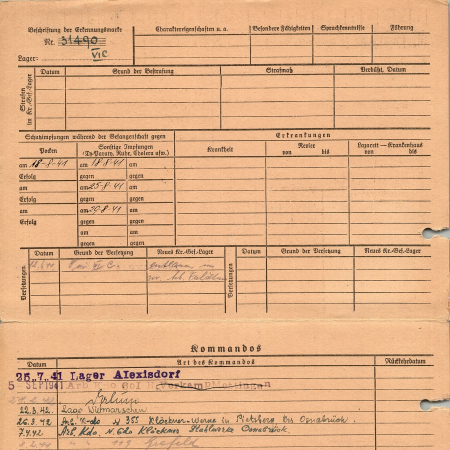 Beschriftung der Erkennungsmarke
Nr. 31490
VI C
Lager:
Charaktereigenschaften u.a.
Besondere Fähigkeiten
Sprachkenntnisse
Führung
Strafen im Kr.-Gef.-Lager
Datum
Grund der Bestrafung
Strafmaß
Verbüßt, Datum
Schutzimpfungen während der Gefangenschaft gegen
Pocken
Sonstige Impfungen
(Ty-Paraty, Ruhr, Cholera usw.)
am 18.8.41 am 18.8.41
Erfolg gegen
am am 25.8.41
Erfolg gegen
am am 29.8.41
Erfolg gegen
am
gegen
Erkrankungen
Krankheit
Revier
von bis
Lazarett – Krankenhaus
von bis
Versetzungen
Datum
Grund der Versetzung
Neues Kr.-Gef.-Lager
Versetzungen
Datum
Grund der Versetzung
Neues Kr.-Gef.-Lager
Kommandos
Datum
Art des Kommandos
Rückkehrdatum
26.7.41 Lager Alexisdorf
5 SEP 1941 Arb Kdo
22.3.42. Lager Wietmarschen
26.3.42 Arb. Kdo # 355 Klöckner-Werke in Osnabrück.
7.4.42 Arb. Kdo. N. 620 Klöckner Stahlwerke Osnabrück.
" " 119